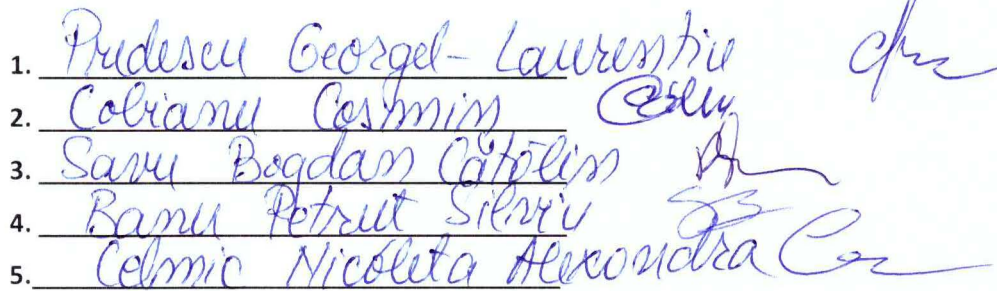 1. Predescu Georgel-Laurentiu
2. Cobianu Cosmin
3. Savu Bogdan Cătălin
4. Banu Petrut Silviu
5. Celmic Nicoleta Alexandra